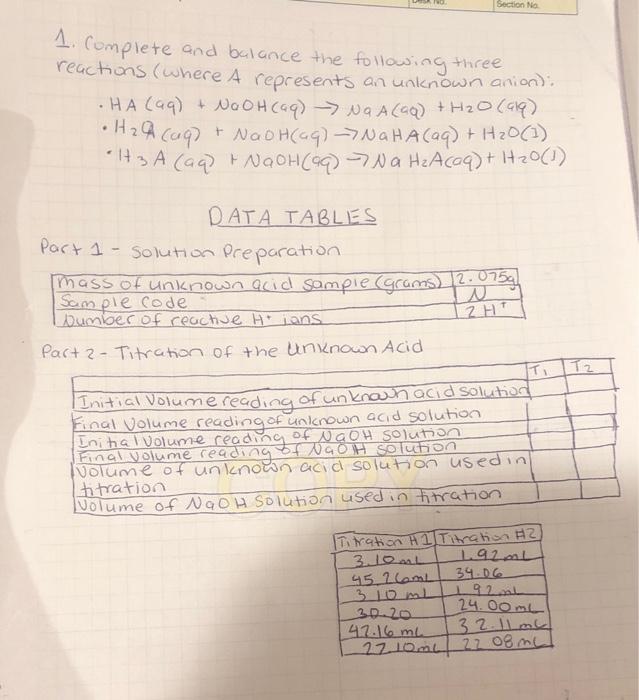 Desk No.
Section No.
1. Complete and balance the following three
reactions (where A represents an unknown anion):
• HA (aq) + NaOH(aq) → NaA(aq) + H2O(aq)
• H2A (aq) + NaOH(aq) → NaHA(aq) + H2O(l)
• H3A (aq) + NaOH(aq) → NaH2A(aq) + H2O(l)
DATA TABLES
Part 1 - Solution Preparation
Mass of unknown acid sample (grams) 2.075g
Sample code N
Number of reactive H+ ions 2 H+
Part 2 - Titration of the Unknown Acid
T1 T2
Initial Volume reading of unknown acid solution
Final Volume reading of unknown acid solution
Initial Volume reading of NaOH solution
Final volume reading of NaOH solution
Volume of unknown acid solution used in
titration
Volume of NaOH solution used in titration
COPY
Titration #1 Titration #2
3.10mL 1.92mL
45.26mL 34.06
3.10 mL 1.92mL
30.20 24.00mL
42.16 mL 32.11 mL
27.10mL 22.08mL